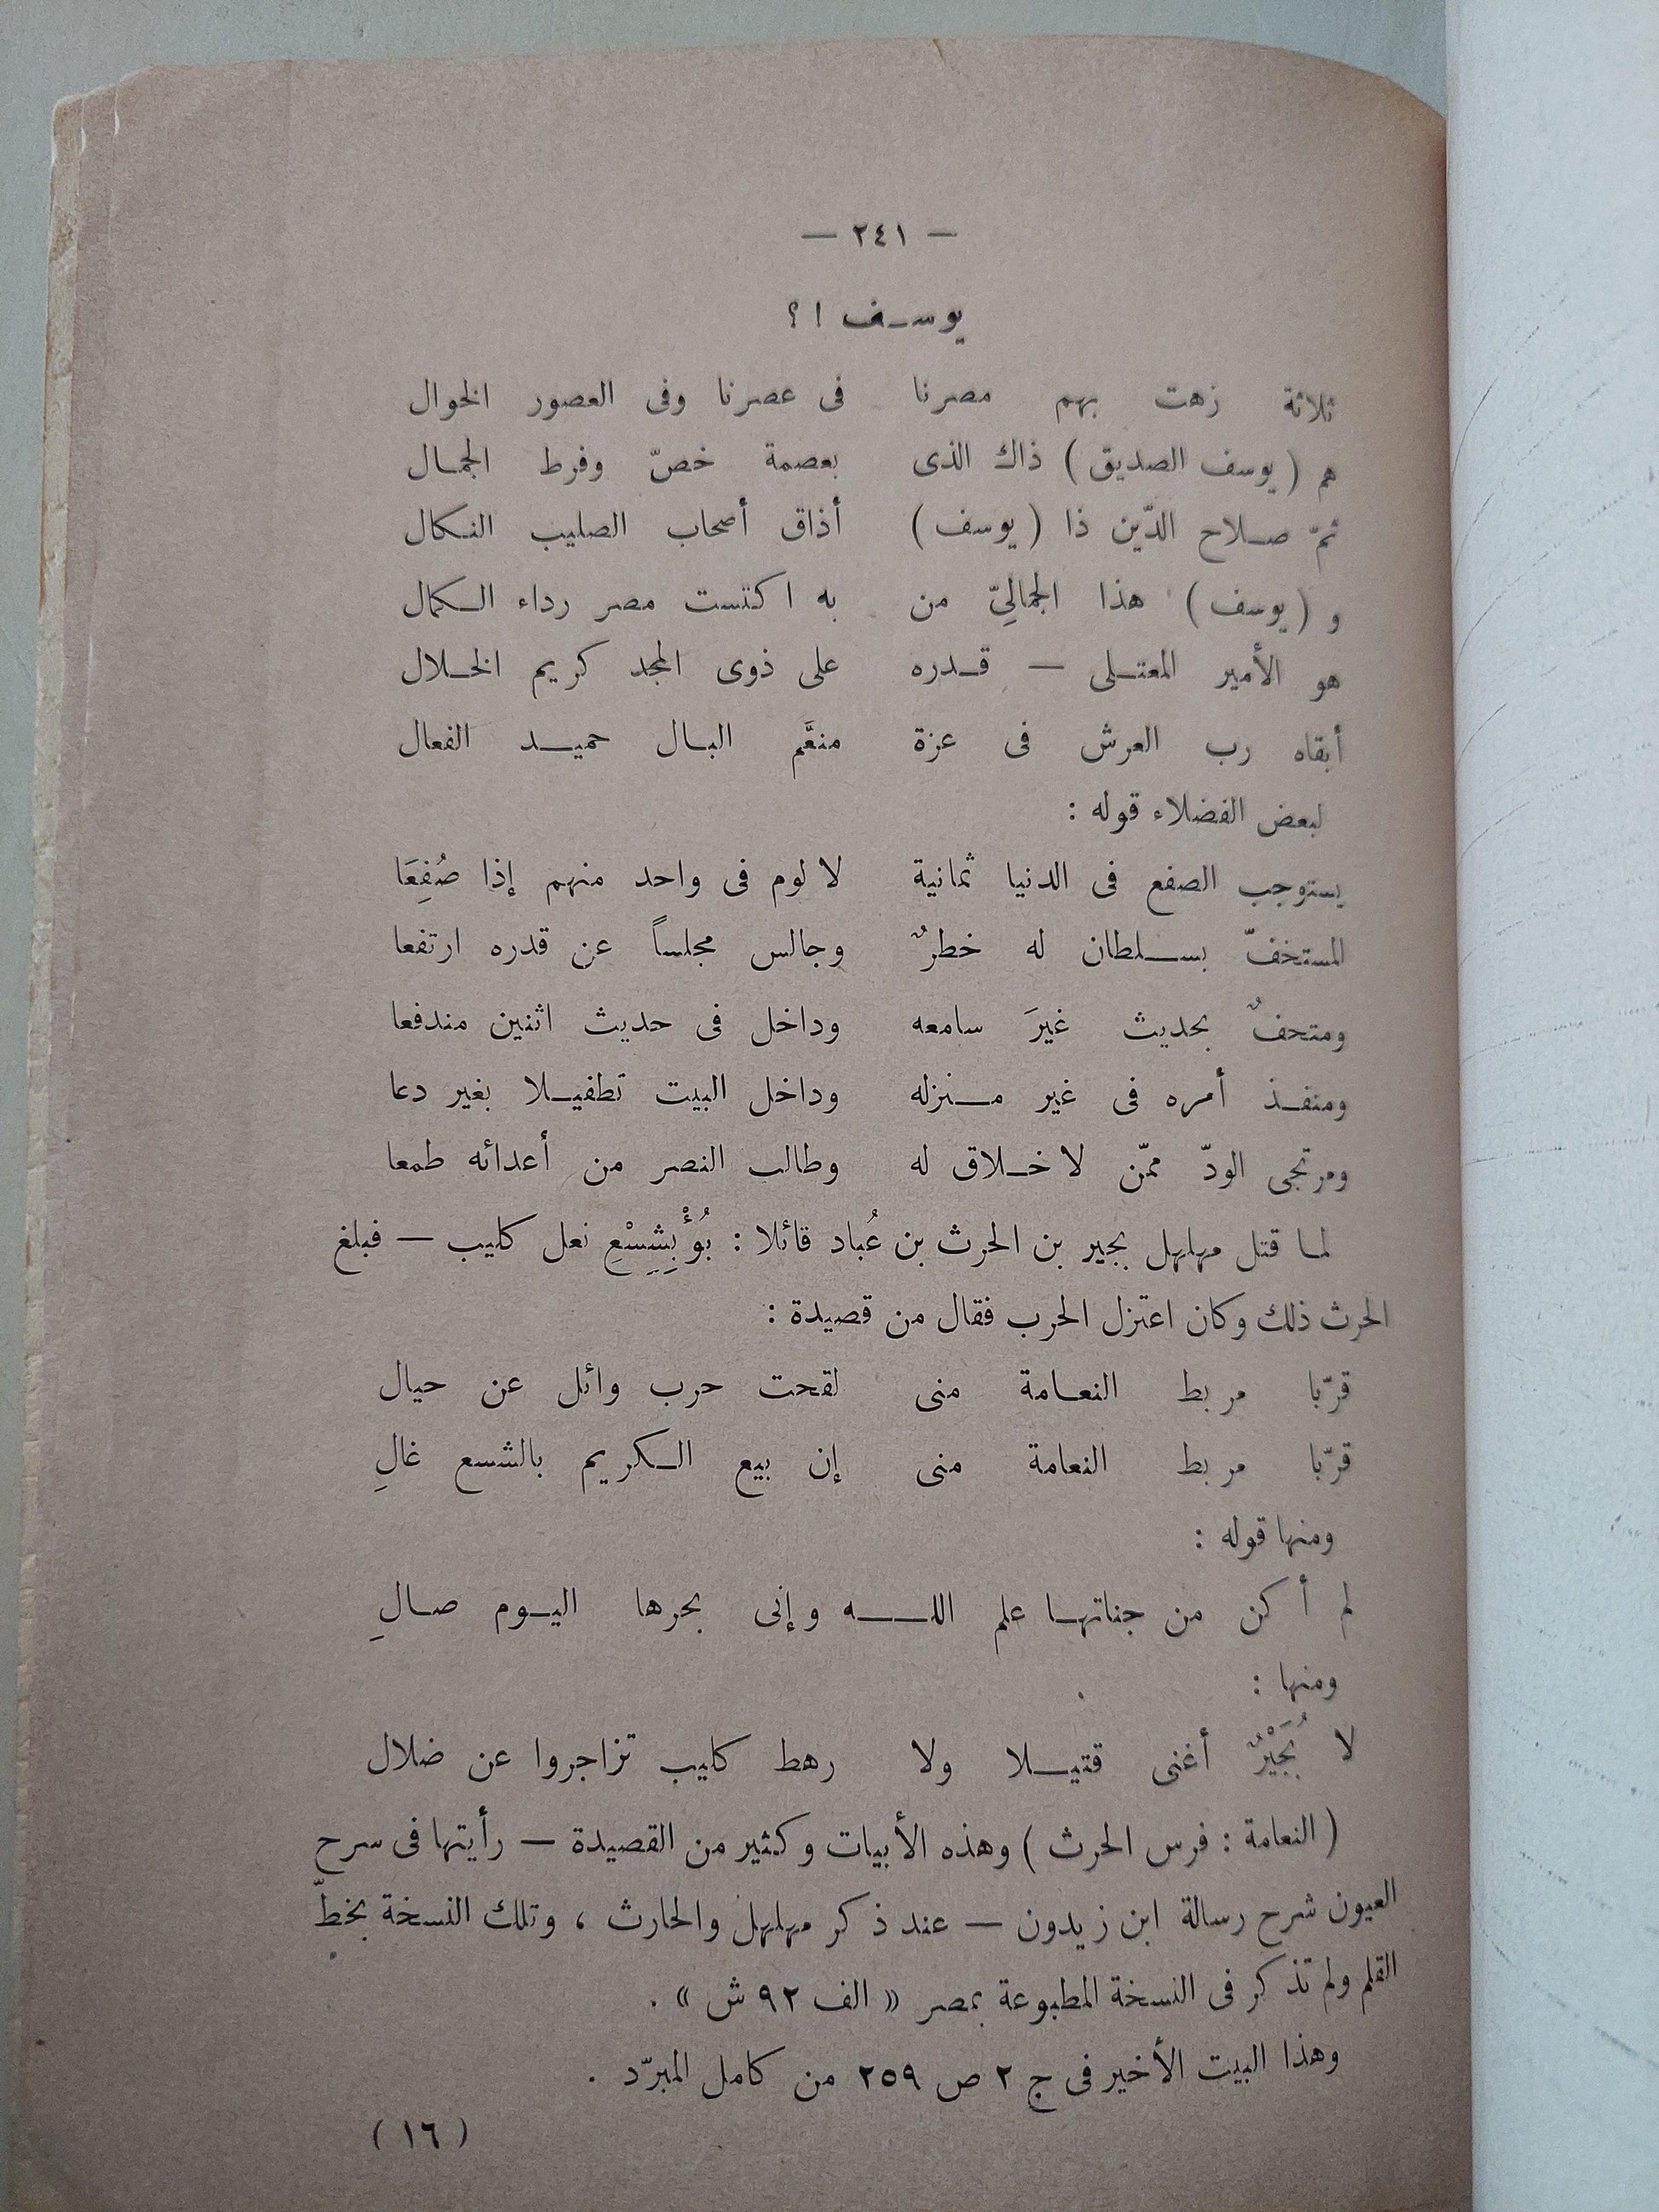 — ٢٤١ —
يوسف ! ؟
ثلاثة زهت بهم مصرنا فى عصرنا وفى العصور الخوال
هم ( يوسف الصديق ) ذاك الذى بعصمة خصّ وفرط الجمال
ثمّ صلاح الدّين ذا ( يوسف ) أذاق أصحاب الصليب النكال
و ( يوسف ) هذا الجماليّ من به اكتست مصر رداء الكمال
هو الأمير المعتلى — قدره على ذوى المجد كريم الخلال
أبقاه رب العرش فى عزة منعَّم البال حميد الفعال
لبعض الفضلاء قوله :
يستوجب الصفع فى الدنيا ثمانية لا لوم فى واحد منهم إذا صُفِعَا
المستخفّ بسلطان له خطرٌ وجالس مجلساً عن قدره ارتفعا
ومتحفٌ بحديث غيرَ سامعه وداخل فى حديث اثنين مندفعا
ومنفذ أمره فى غير منزله وداخل البيت تطفيلا بغير دعا
ومرتجى الودّ ممّن لا خلاق له وطالب النصر من أعدائه طمعا
لما قتل مهلهل بجير بن الحرث بن عُباد قائلا : بُؤْ بِشِسْعِ نعل كليب — فبلغ
الحرث ذلك وكان اعتزل الحرب فقال من قصيدة :
قرّبا مربط النعامة منى لقحت حرب وائل عن حيال
قرّبا مربط النعامة منى إن بيع الكريم بالشسع غالِ
ومنها قوله :
لم أكن من جناتها علم الله وإنى بحرها اليوم صالِ
ومنها :
لا بُجَيْرٌ أغنى قتيلا ولا رهط كليب تزاجروا عن ضلال
( النعامة : فرس الحرث ) وهذه الأبيات وكثير من القصيدة — رأيتها فى سرح
العيون شرح رسالة ابن زيدون — عند ذكر مهلهل والحارث ، وتلك النسخة بخطّ
القلم ولم تذكر فى النسخة المطبوعة بمصر « الف ٩٢ ش » .
وهذا البيت الأخير فى ج ٢ ص ٢٥٩ من كامل المبرّد .
( ١٦ )